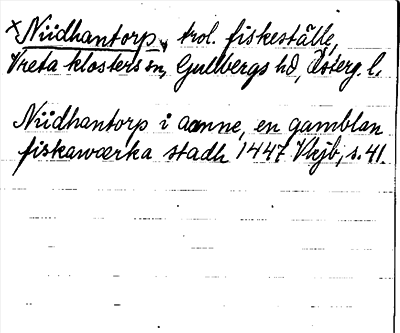 ×Niidhantorp, trol. fiskeställe,
Vreta klosters sn, Gullbergs hd, Österg. l.
Niidhantorp i aanne, en gamblan
fiskawærka stadh 1447 Vkjb, s. 41.